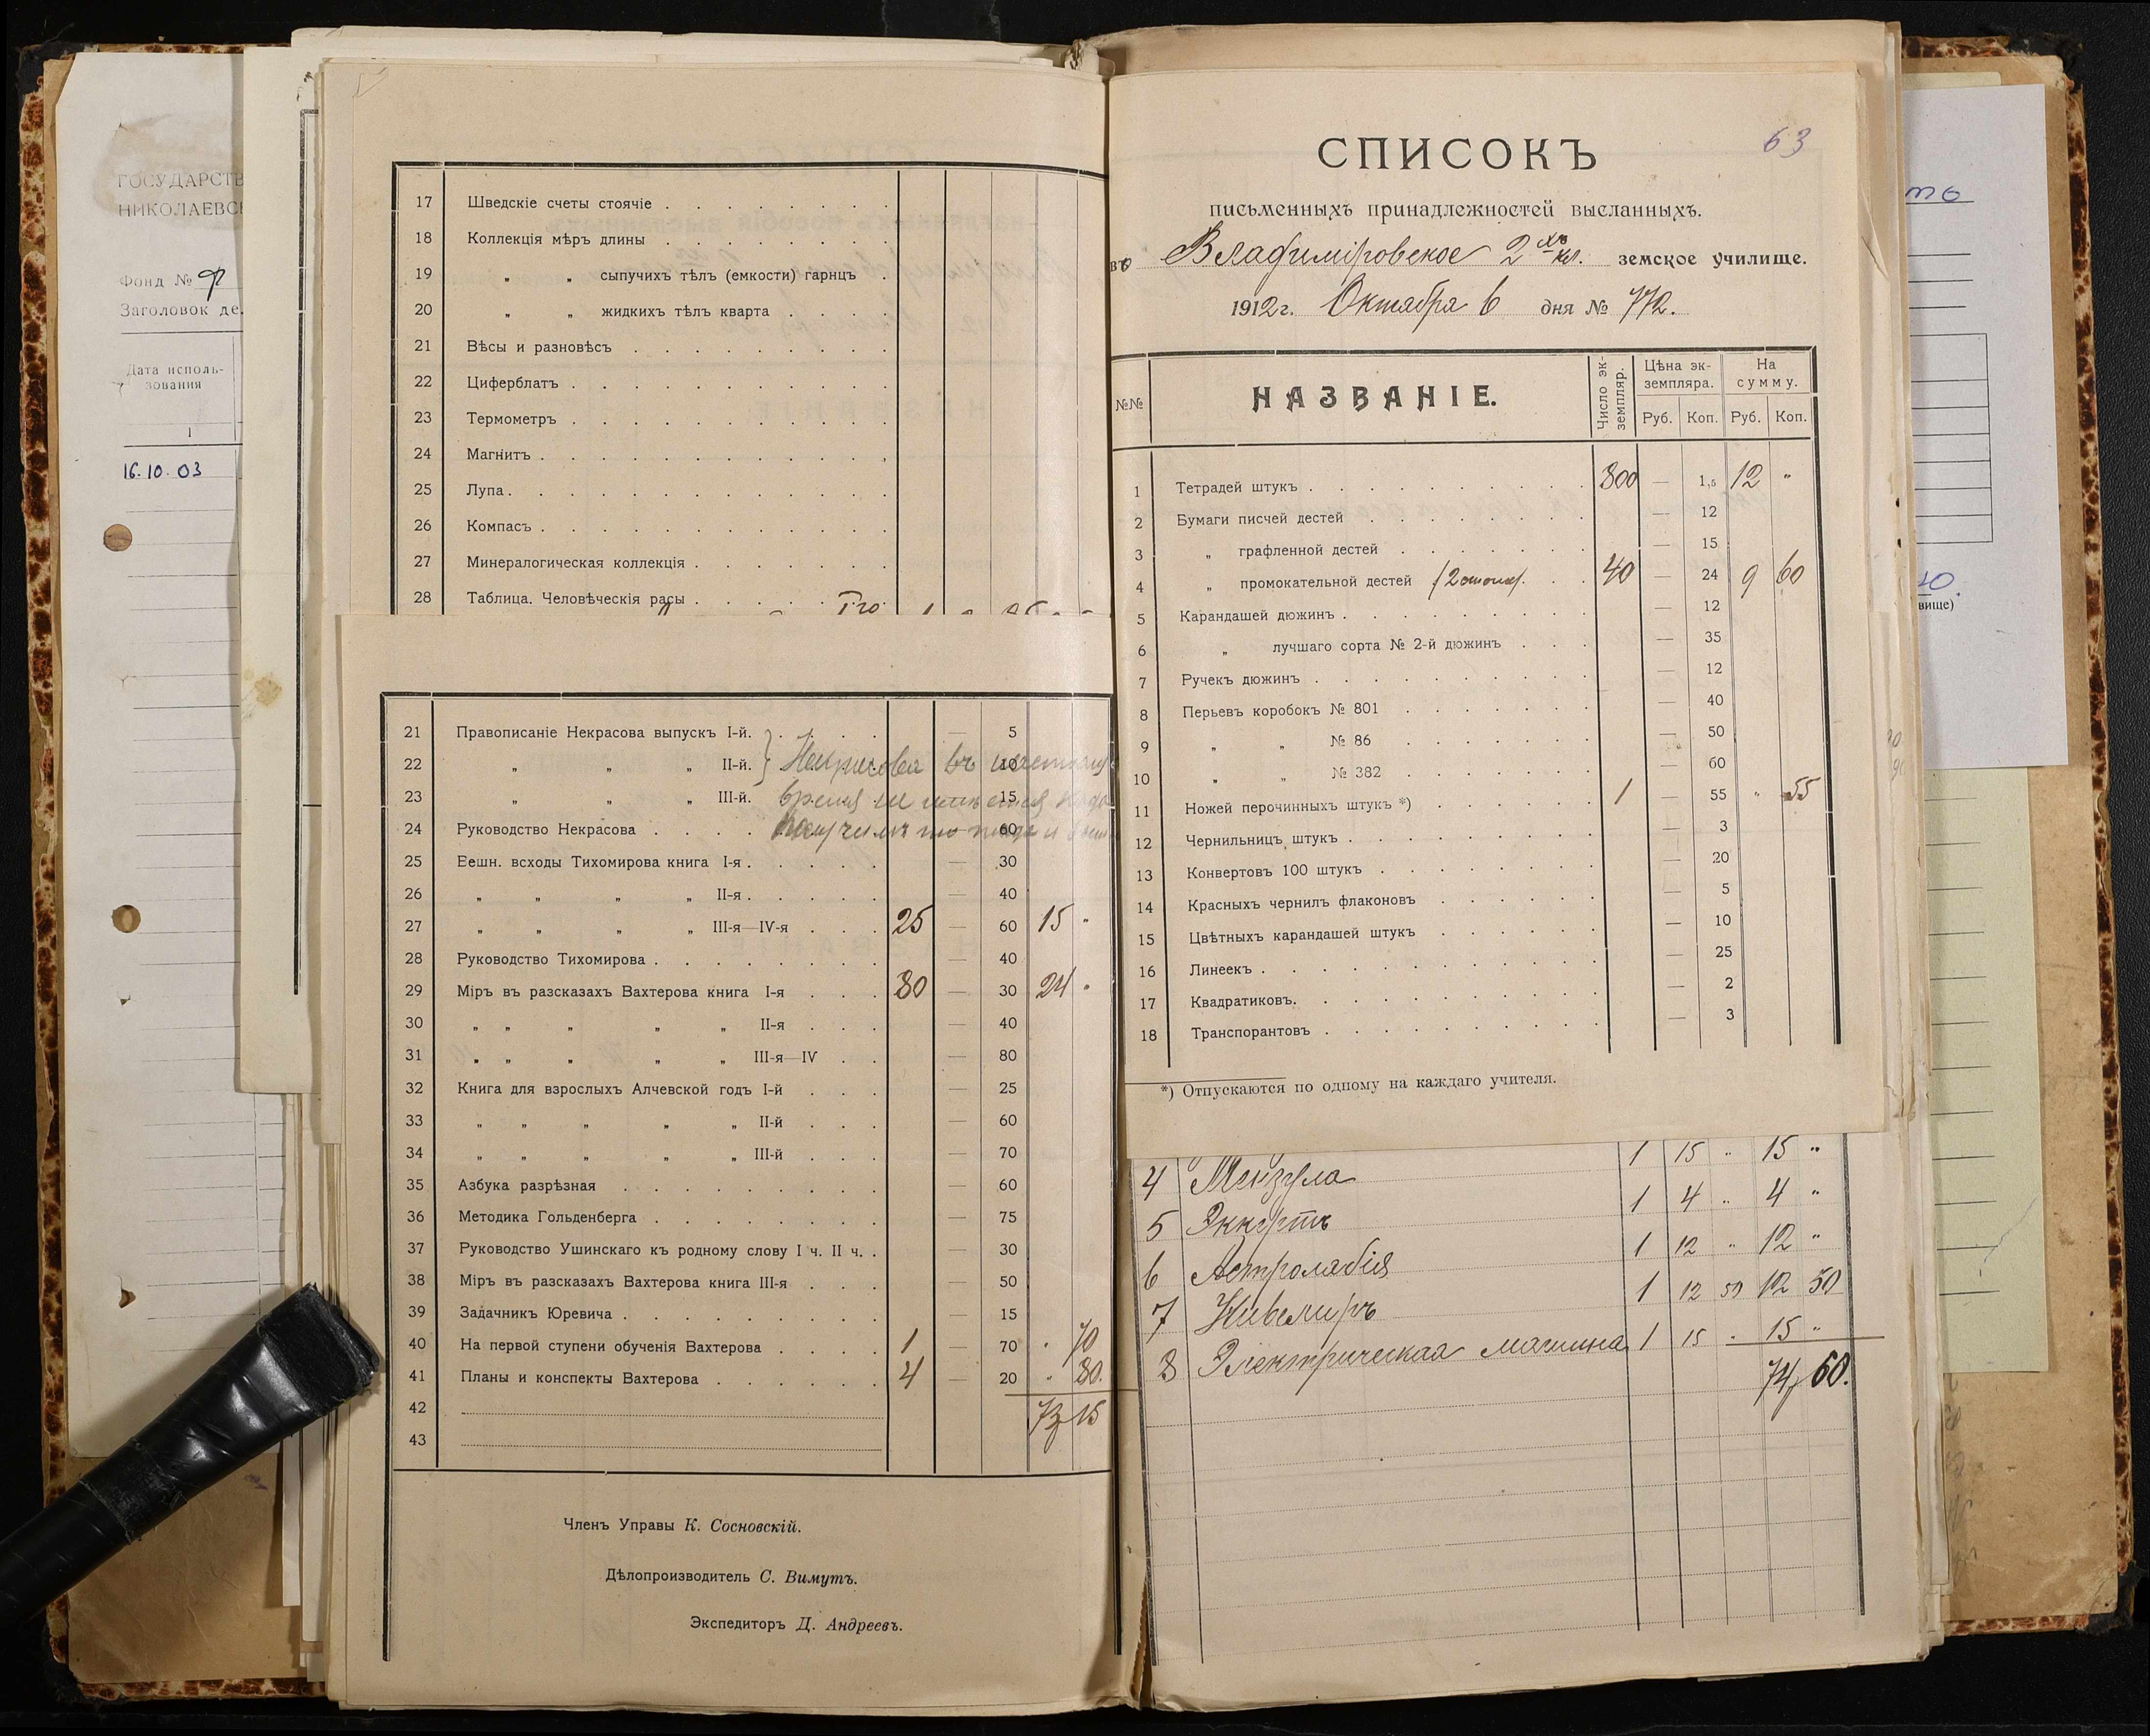 ГОСУДАРСТВ
НИКОЛАЕВС
Фонд №
Заголовок де
Дата исполь-
зования
1
16.10.03
17 Шведскіе счеты стоячіе
18 Коллекція мѣръ длины
19 „ „ сыпучихъ тѣлъ (емкости) гарнцъ
20 „ „ жидкихъ тѣлъ кварта
21 Вѣсы и разновѣсъ
22 Циферблатъ
23 Термометръ
24 Магнитъ
25 Лупа
26 Компасъ
27 Минералогическая коллекція
28 Таблица. Человѣческія расы
21 Правописаніе Некрасова выпускъ I-й. — 5
22 „ „ „ II-й. Некрасова въ 10
23 „ „ „ III-й. время не имѣется 15
24 Руководство Некрасова 60
25 Еешн. всходы Тихомирова книга I-я — 30
26 „ „ „ „ II-я — 40
27 „ „ „ „ III-я—IV-я 25 — 60 15 „
28 Руководство Тихомирова — 40
29 Міръ въ разсказахъ Вахтерова книга I-я 80 — 30 24 „
30 „ „ „ „ „ II-я — 40
31 „ „ „ „ „ III-я—IV — 80
32 Книга для взрослыхъ Алчевской годъ I-й — 25
33 „ „ „ „ „ II-й — 60
34 „ „ „ „ „ III-й — 70
35 Азбука разрѣзная — 60
36 Методика Гольденберга — 75
37 Руководство Ушинскаго къ родному слову I ч. II ч. — 30
38 Міръ въ разсказахъ Вахтерова книга III-я — 50
39 Задачникъ Юревича — 15
40 На первой ступени обученія Вахтерова 1 — 70 „ 70
41 Планы и конспекты Вахтерова 4 — 20 „ 80.
42 73 15
43
Членъ Управы К. Сосновскій.
Дѣлопроизводитель С. Вимутъ.
Экспедиторъ Д. Андреевъ.
63
СПИСОКЪ
письменныхъ принадлежностей высланныхъ.
въ Владиміровское 2 хъ кл. земское училище.
1912г. Октября 6 дня № 772.
№№ НАЗВАНІЕ. Число эк-земпляр. Цѣна эк-земпляра. На сумму.
Руб. Коп. Руб. Коп.
1 Тетрадей штукъ 800 — 1,5 12 „
2 Бумаги писчей дестей — 12
3 „ графленной дестей — 15
4 „ промокательной дестей (2 стопы) 40 — 24 9 60
5 Карандашей дюжинъ — 12
6 „ лучшаго сорта № 2-й дюжинъ — 35
7 Ручекъ дюжинъ — 12
8 Перьевъ коробокъ № 801 — 40
9 „ „ № 86 — 50
10 „ „ № 382 — 60
11 Ножей перочинныхъ штукъ *) 1 — 55 „ 55
12 Чернильницъ штукъ — 3
13 Конвертовъ 100 штукъ — 20
14 Красныхъ чернилъ флаконовъ — 5
15 Цвѣтныхъ карандашей штукъ — 10
16 Линеекъ — 25
17 Квадратиковъ. — 2
18 Транспорантовъ — 3
*) Отпускаются по одному на каждаго учителя.
4 Мензула 1 15 „ 15 „
5 Эккертъ 1 4 „ 4 „
6 Астролабія 1 12 „ 12 „
7 Нивелиръ 1 12 50 12 50
8 Электрическая машина 1 15 „ 15 „
74, 60.
вище)